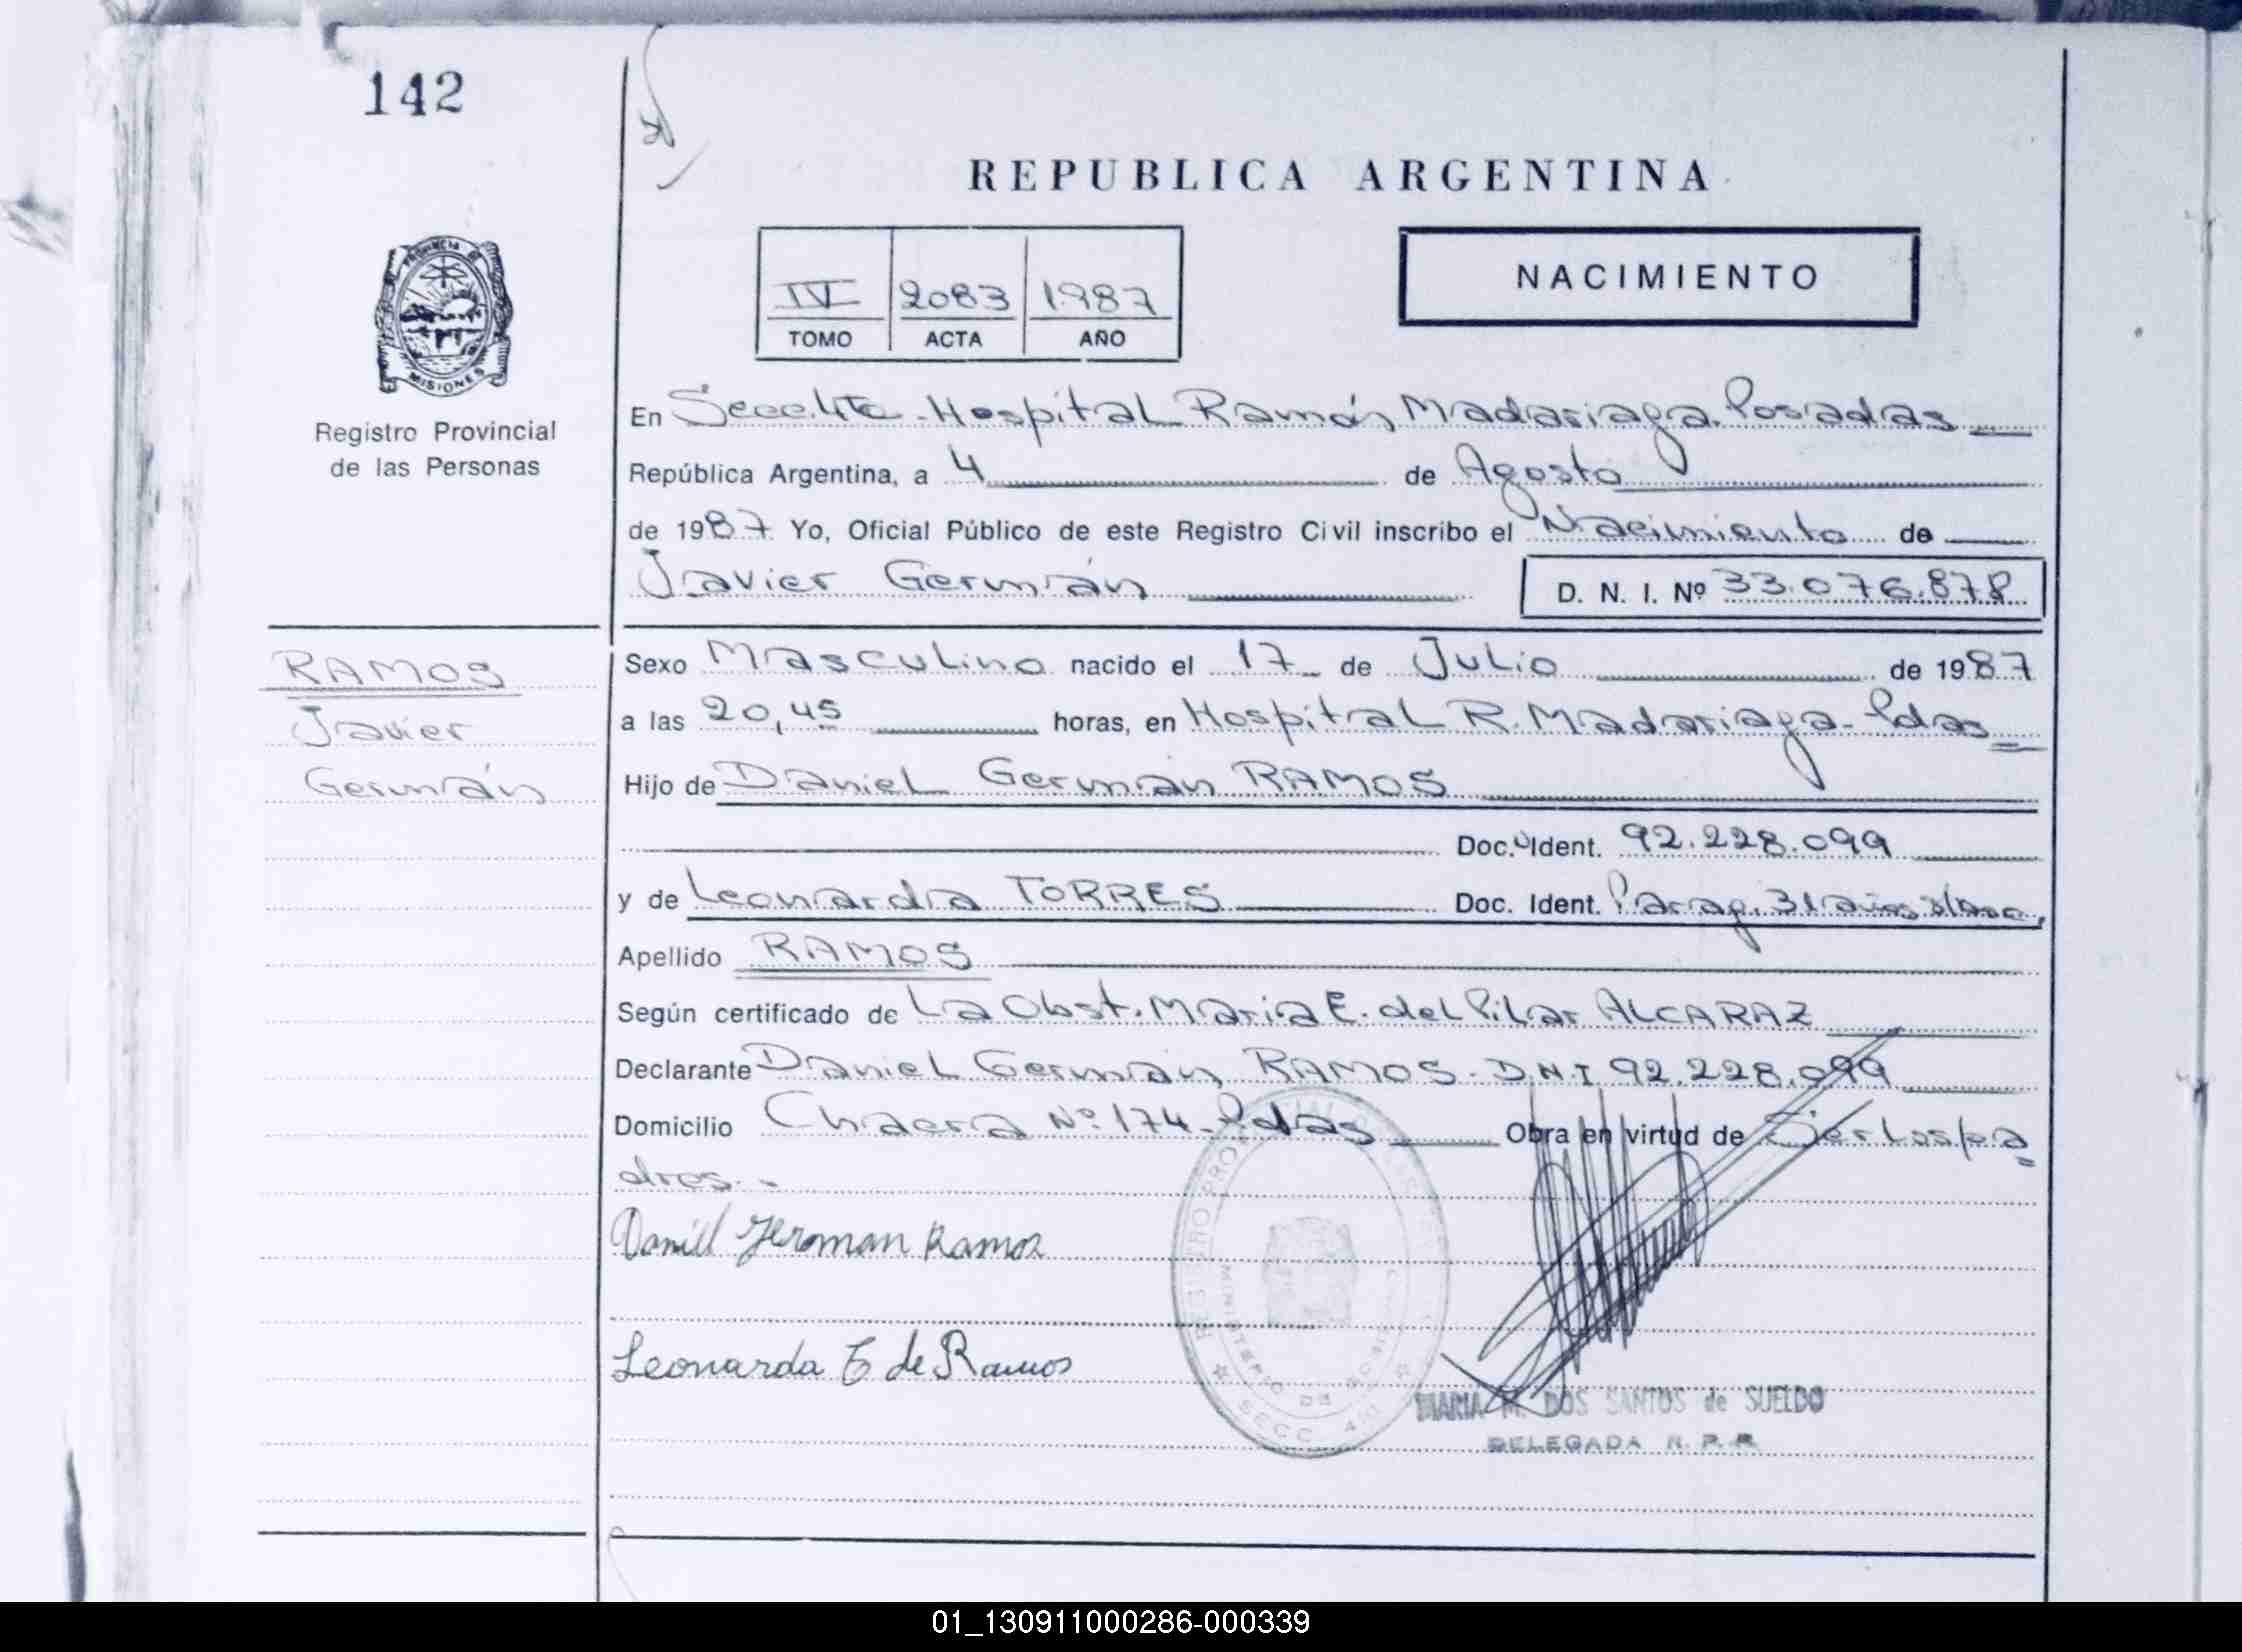 142
REPUBLICA ARGENTINA
IV 2083 1987
TOMO ACTA AÑO
NACIMIENTO
PROVINCIA DE
MISIONES
Registro Provincial
de las Personas
En Secc. 4ta - Hospital Ramón Madariaga. Posadas
República Argentina, a 4 de Agosto
de 1987 Yo, Oficial Público de este Registro Civil inscribo el Nacimiento de
Javier Germán D. N. I. Nº 33.076.878
RAMOS
Javier
Germán
Sexo Masculino nacido el 17 de Julio de 1987
a las 20,45 horas, en Hospital R. Madariaga - Pdas
Hijo de Daniel Germán RAMOS
Doc. Ident. 92.228.099
y de Leonarda TORRES Doc. Ident. Parag. 31 años
Apellido RAMOS
Según certificado de La Obst. Maria E. del Pilar ALCARAZ
Declarante Daniel Germán RAMOS - D.N.I 92.228.099
Domicilio Chacra Nº 174 - Pdas Obra en virtud de Ser los pa
dres.-
Daniel German Ramos
Leonarda T de Ramos
REGISTRO PROVINCIAL
MINISTERIO DE GOBIERNO
SECC. 4ta
MARIA M. DOS SANTOS de SUELDO
DELEGADA R. P. P.
01_130911000286-000339